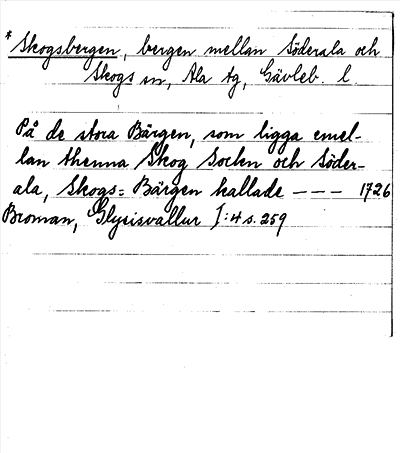 * Skogsbergen, bergen mellan Söderala och
Skogs sn, Ala tg, Gävleb. l
På de stora Bärgen, som ligga emel-
lan thenna Skog Socken och Söder-
ala, Skogs=Bärgen kallade --- 1726
Broman, Glysisvallur I:4 s. 259